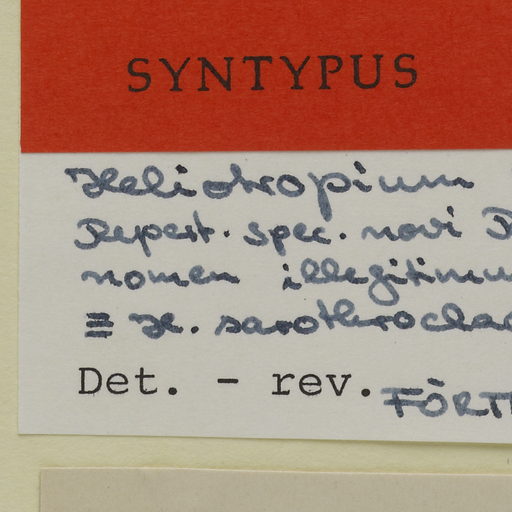 SYNTYPUS
Heliotropium
Repert. spec. novi R
nomen illegitimu
≡ H. sarothrocla
Det. - rev. FÖRT